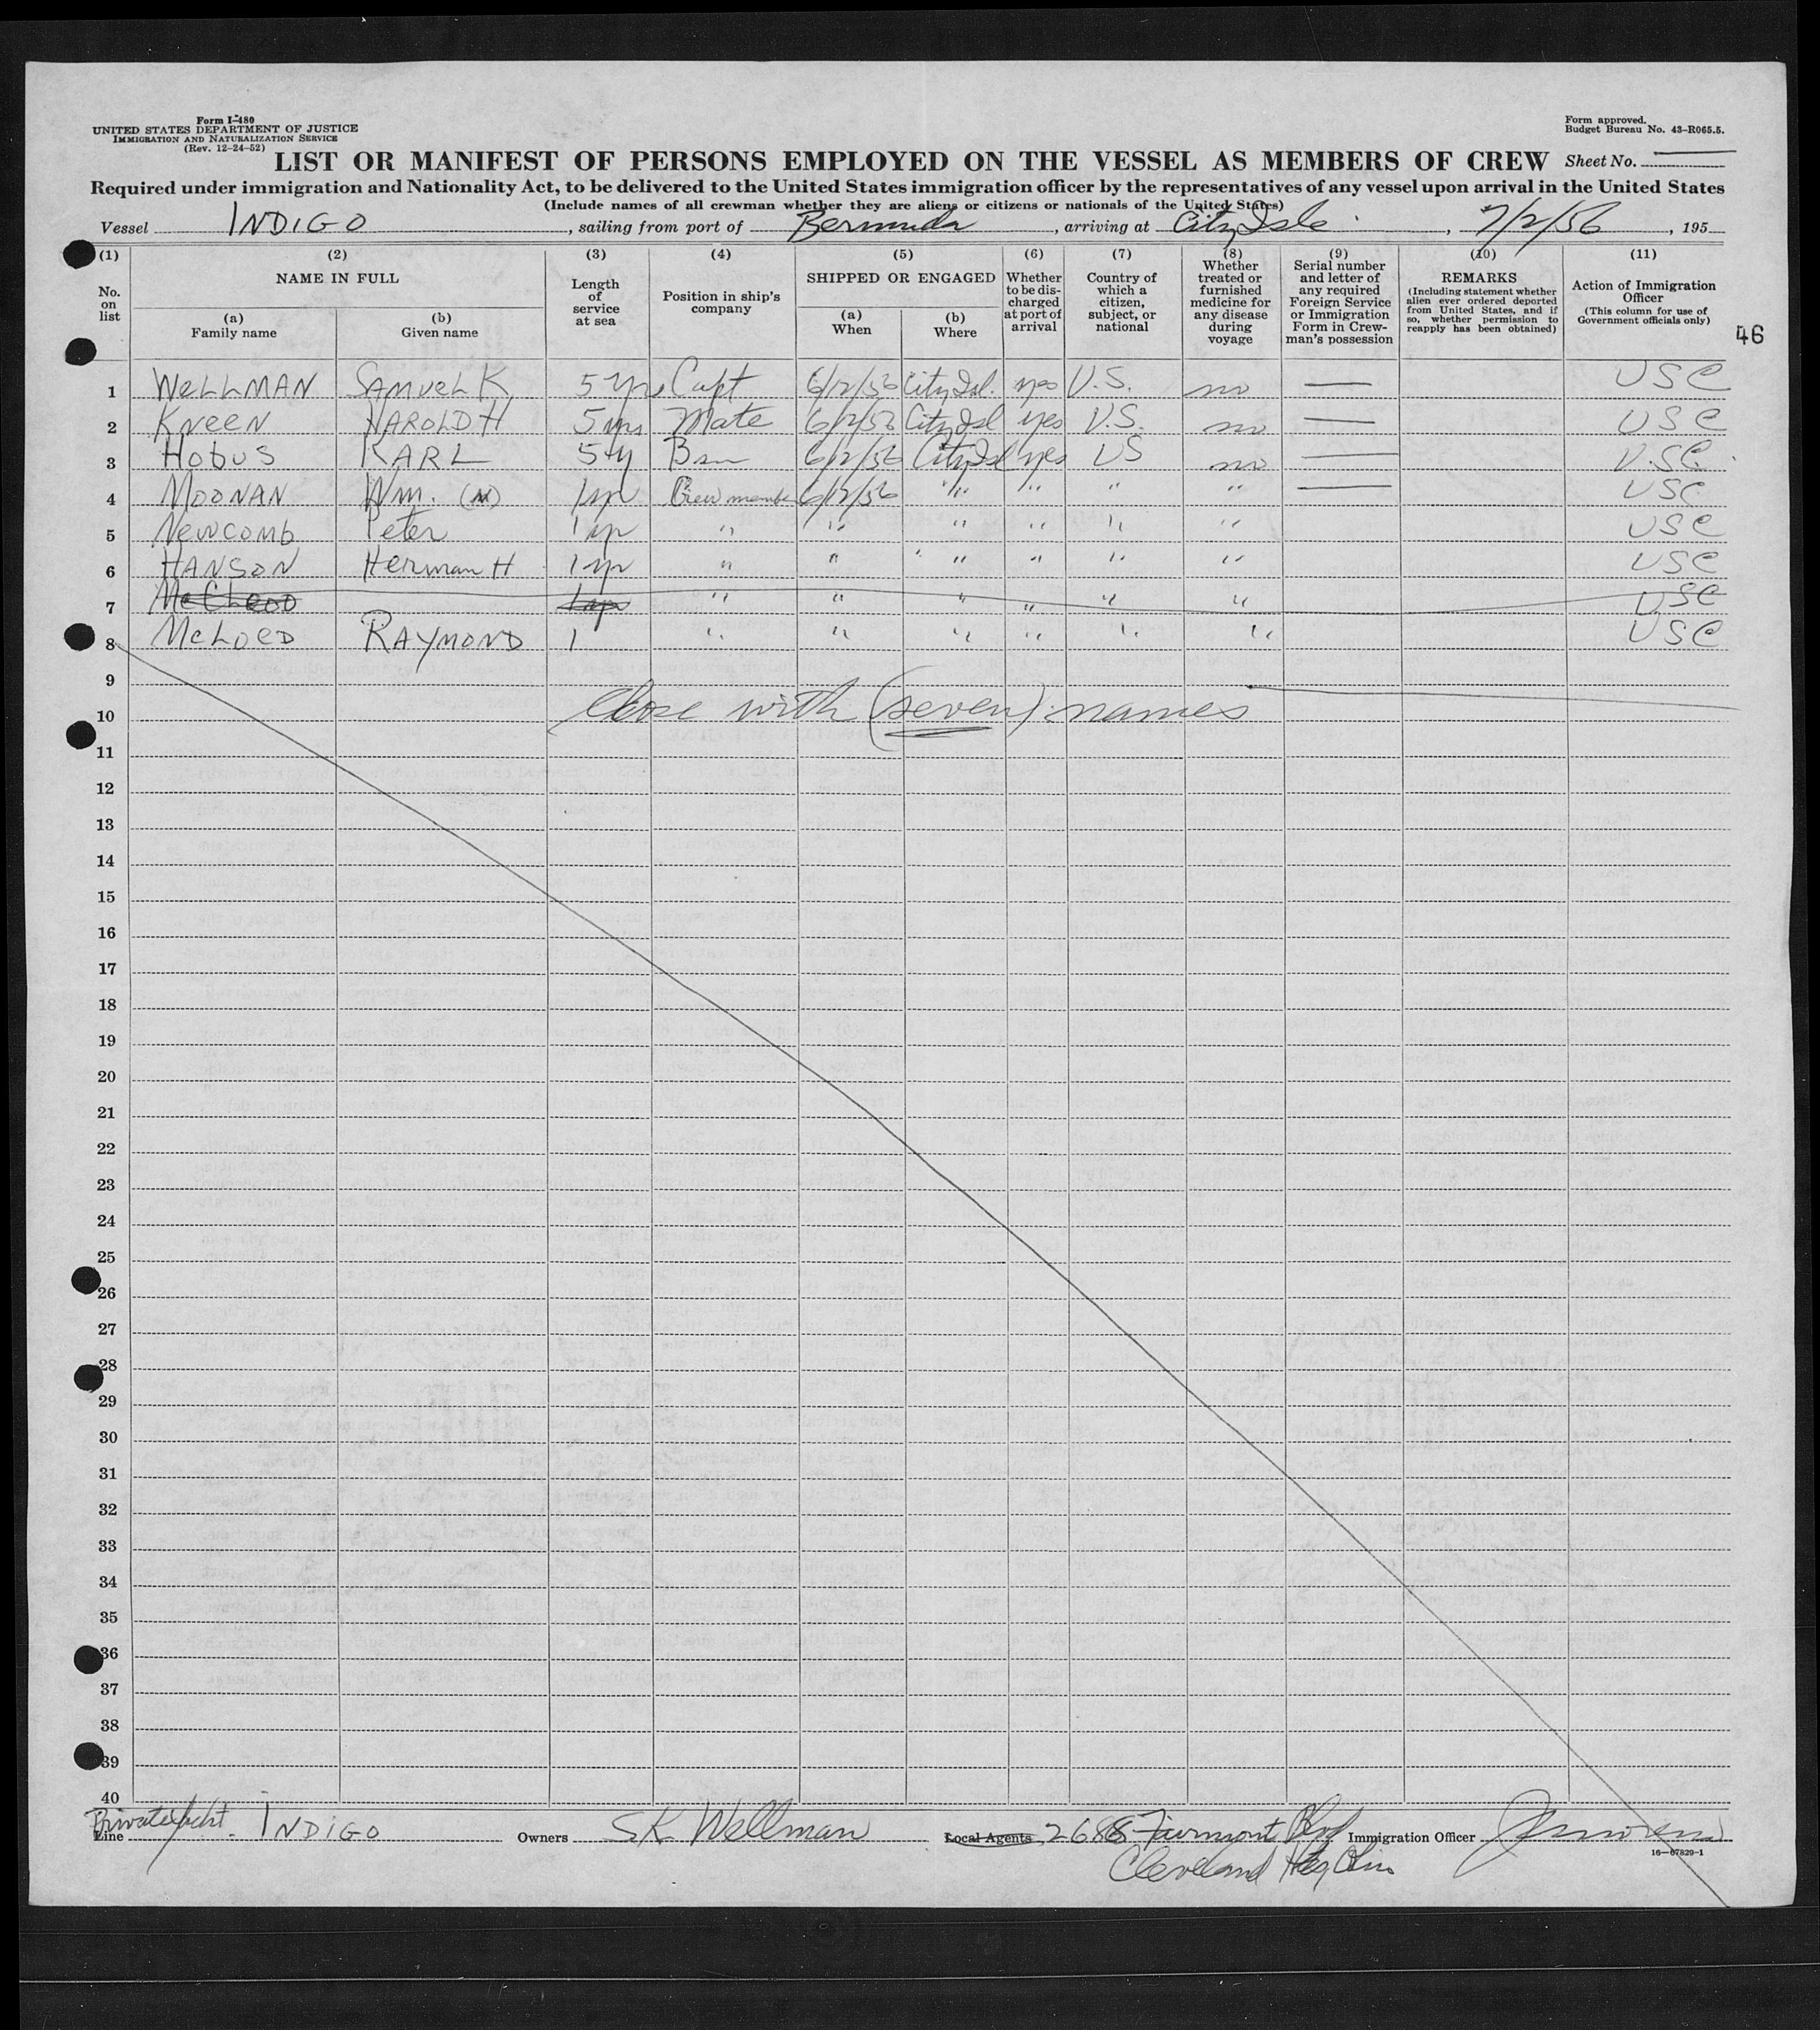 Form I-480
UNITED STATES DEPARTMENT OF JUSTICE
IMMIGRATION AND NATURALIZATION SERVICE
(Rev. 12-24-52)
Form approved.
Budget Bureau No. 43-R065.5.
LIST OR MANIFEST OF PERSONS EMPLOYED ON THE VESSEL AS MEMBERS OF CREW Sheet No.
Required under immigration and Nationality Act, to be delivered to the United States immigration officer by the representatives of any vessel upon arrival in the United States
(Include names of all crewman whether they are aliens or citizens or nationals of the United States)
Vessel INDIGO, sailing from port of Bermuda, arriving at City Isle, 7/2/56, 195
(1) No. on list
(2) NAME IN FULL
(a) Family name
(b) Given name
(3) Length of service at sea
(4) Position in ship's company
(5) SHIPPED OR ENGAGED
(a) When
(b) Where
(6) Whether to be discharged at port of arrival
(7) Country of which a citizen, subject, or national
(8) Whether treated or furnished medicine for any disease during voyage
(9) Serial number and letter of any required Foreign Service or Immigration Form in Crewman's possession
(10) REMARKS (Including statement whether alien ever ordered deported from United States, and if so, whether permission to reapply has been obtained)
(11) Action of Immigration Officer (This column for use of Government officials only)
46
1 WELLMAN SAMUEL K 5 yrs Capt 6/12/56 City Isl. yes U.S. no — USC
2 KNEEN HAROLD H 5 yrs Mate 6/12/56 City Isl yes U.S. no — USC
3 HOBUS KARL 5 y 6/12/56 City Isl yes US no — U.SC.
4 MOONAN Wm. (M) 1 yr Crew member 6/12/56 " " " " — USC
5 NEWCOMB Peter 1 yr " " " " " " USC
6 HANSON Herman H 1 yr " " " " " " USC
7 McCLEOD 1 yr " " " " " " USC
8 McLOED RAYMOND 1 " " " " " " USC
9
Close with (seven) names
10
11
12
13
14
15
16
17
18
19
20
21
22
23
24
25
26
27
28
29
30
31
32
33
34
35
36
37
38
39
40
Private Yacht
Line INDIGO Owners SK Wellman Local Agents 2688 Fairmont Blvd Immigration Officer
Cleveland Hts, Ohio
16—67829-1